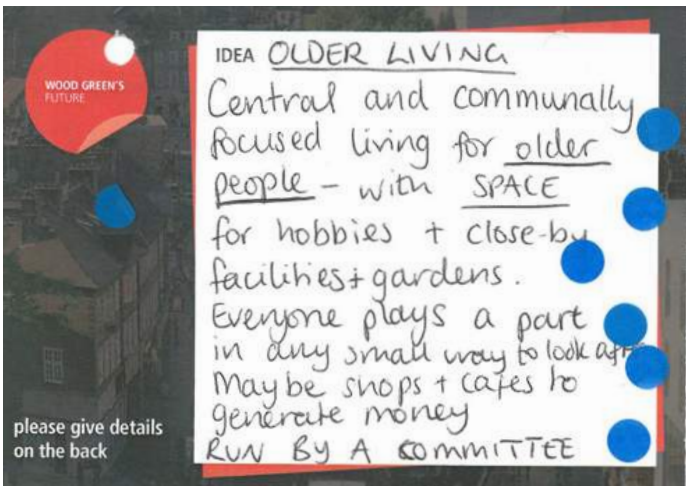 WOOD GREEN'S
FUTURE
IDEA OLDER LIVING
Central and communally
focused living for older
people – with SPACE
for hobbies + close-by
facilities + gardens.
Everyone plays a part
in any small way to look after
Maybe shops + cafes to
generate money
RUN BY A COMMITTEE
please give details
on the back